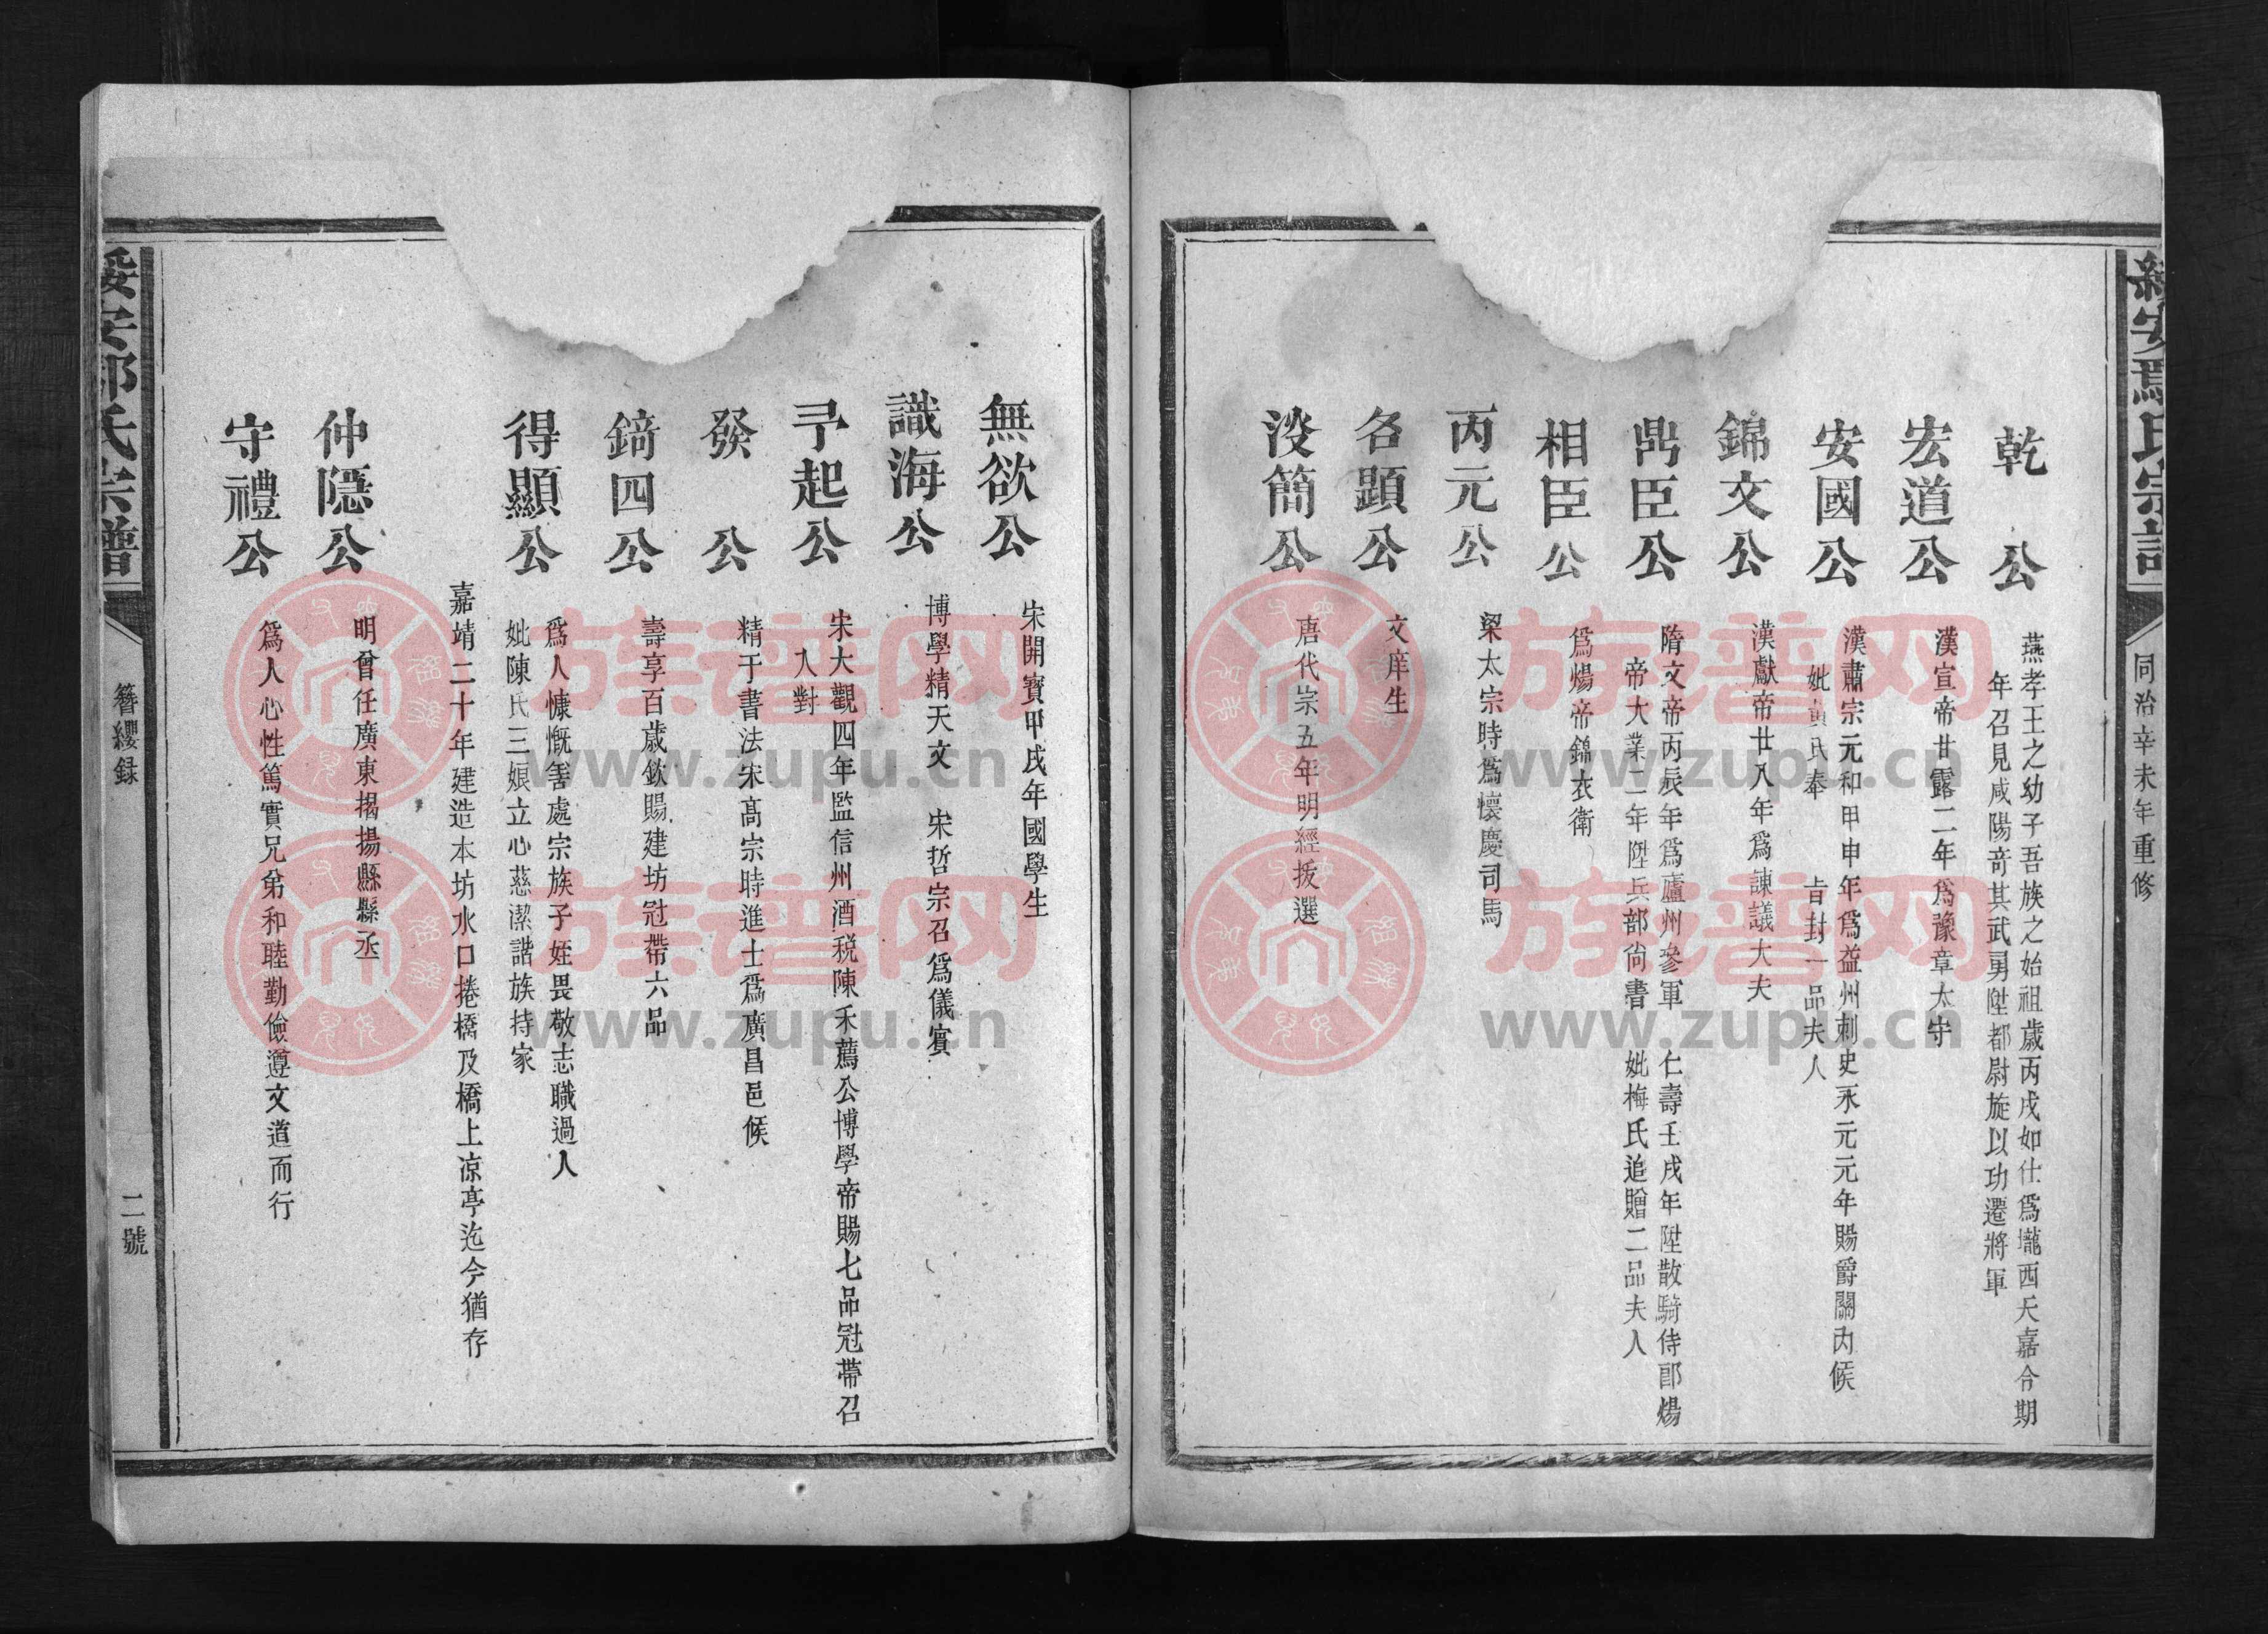 同治辛未年重修
乾公
燕孝王之幼子吾族之始祖歲丙戌如仕爲壠西天嘉合期
年召見咸陽竒其武勇陞都尉旋以功遷將軍
宏道公
漢宣帝甘露二年爲豫章太守
安國公
漢肅宗元和甲申年爲益州刺史永元元年賜爵關內候
妣黃氏奉 旨封一品夫人
錦文公
漢獻帝廿八年爲諫議大夫
鼎臣公
隋文帝丙辰年爲廬州參軍 仁壽壬戌年陞散騎侍郎煬
帝大業二年陞兵部尙書 妣梅氏追贈二品夫人
相臣公
爲煬帝錦衣衛
丙元公
梁太宗時爲懷慶司馬
名顕公
文庠生
淡簡公
唐代宗五年明經拔選
無欲公
宋開寶甲戌年國學生
識海公
博學精天文 宋哲宗召爲儀賓
予起公
宋大觀四年監信州酒税陳禾薦公博學帝賜七品冠帶召
入對
發公
精于書法宋高宗時進士爲廣昌邑候
錡四公
壽享百歲欽賜建坊冠帶六品
得顯公
爲人慷慨善處宗族子姪畏敬志職過人
妣陳氏三娘立心慈潔諧族持家
嘉靖二十年建造本坊水口捲橋及橋上凉亭迄今猶存
仲隱公
明曾任廣東揭揚縣縣丞
守禮公
爲人心性篤實兄弟和睦勤儉遵文道而行
簪纓録
二號
族谱网
www.zupu.cn
族谱网
www.zupu.cn
族谱网
www.zupu.cn
族谱网
www.zupu.cn